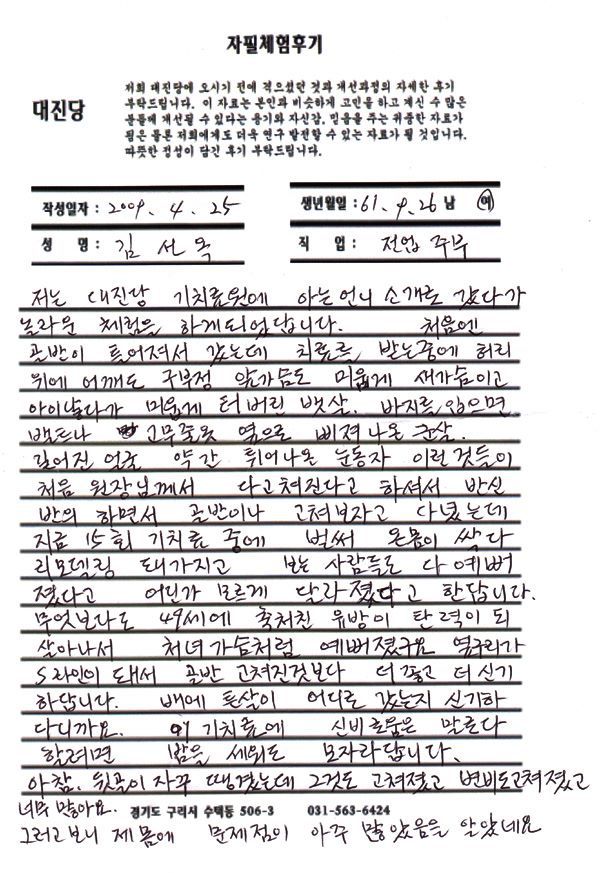 자필체험후기
대진당
저희 대진당에 오시기 전에 겪으셨던 것과 개선과정의 자세한 후기
부탁드립니다. 이 자료는 본인과 비슷하게 고민을 하고 계신 수 많은
분들께 개선될 수 있다는 용기와 자신감, 믿음을 주는 귀중한 자료가
됨은 물론 저희에게도 더욱 연구 발전할 수 있는 자료가 될 것입니다.
따뜻한 정성이 담긴 후기 부탁드립니다.
작성일자 : 2009. 4. 25 생년월일 : 61. 9. 26 남 여
성 명 : 김선옥 직 업 : 전업 주부
저는 대진당 기치료원에 아는언니 소개로 갔다가
놀라운 체험을 하게되었답니다. 처음엔
골반이 틀어져서 갔는데 치료를 받는중에 허리
위에 어깨도 구부정 앞가슴도 미웁게 새가슴이고
아이낳다가 미웁게 터버린 뱃살. 바지를 입으면
벨트나 고무줄옷 옆으로 삐져나온 군살.
길어진 얼굴 약간 튀어나온 눈동자 이런것들이
처음 원장님께서 다고쳐진다고 하셔서 반신
반의 하면서 골반이나 고쳐보자고 다녔는데
지금 15회 기치료 중에 벌써 온몸이 싹 다
리모델링 돼가지고 보는 사람들도 다 예뻐
졌다고 어딘가 모르게 달라졌다고 한답니다.
무엇보다도 49세에 축쳐진 유방이 탄력이 되
살아나서 처녀가슴처럼 예뻐졌구요 옆구리가
S라인이 돼서 골반 고쳐진것보다 더 좋고 더 신기
하답니다. 배에 튼살이 어디로 갔는지 신기하
다니까요. 이 기치료에 신비로움은 말로다
할려면 밤을 세워도 모자라답니다.
아참. 뒷골이 자꾸 땡겼는데 그것도 고쳐졌고 변비도고쳐졌고
너무 많아요. 경기도 구리시 수택동 506-3 031-563-6424
그러고보니 제 몸에 문제점이 아주 많았음을 알았네요